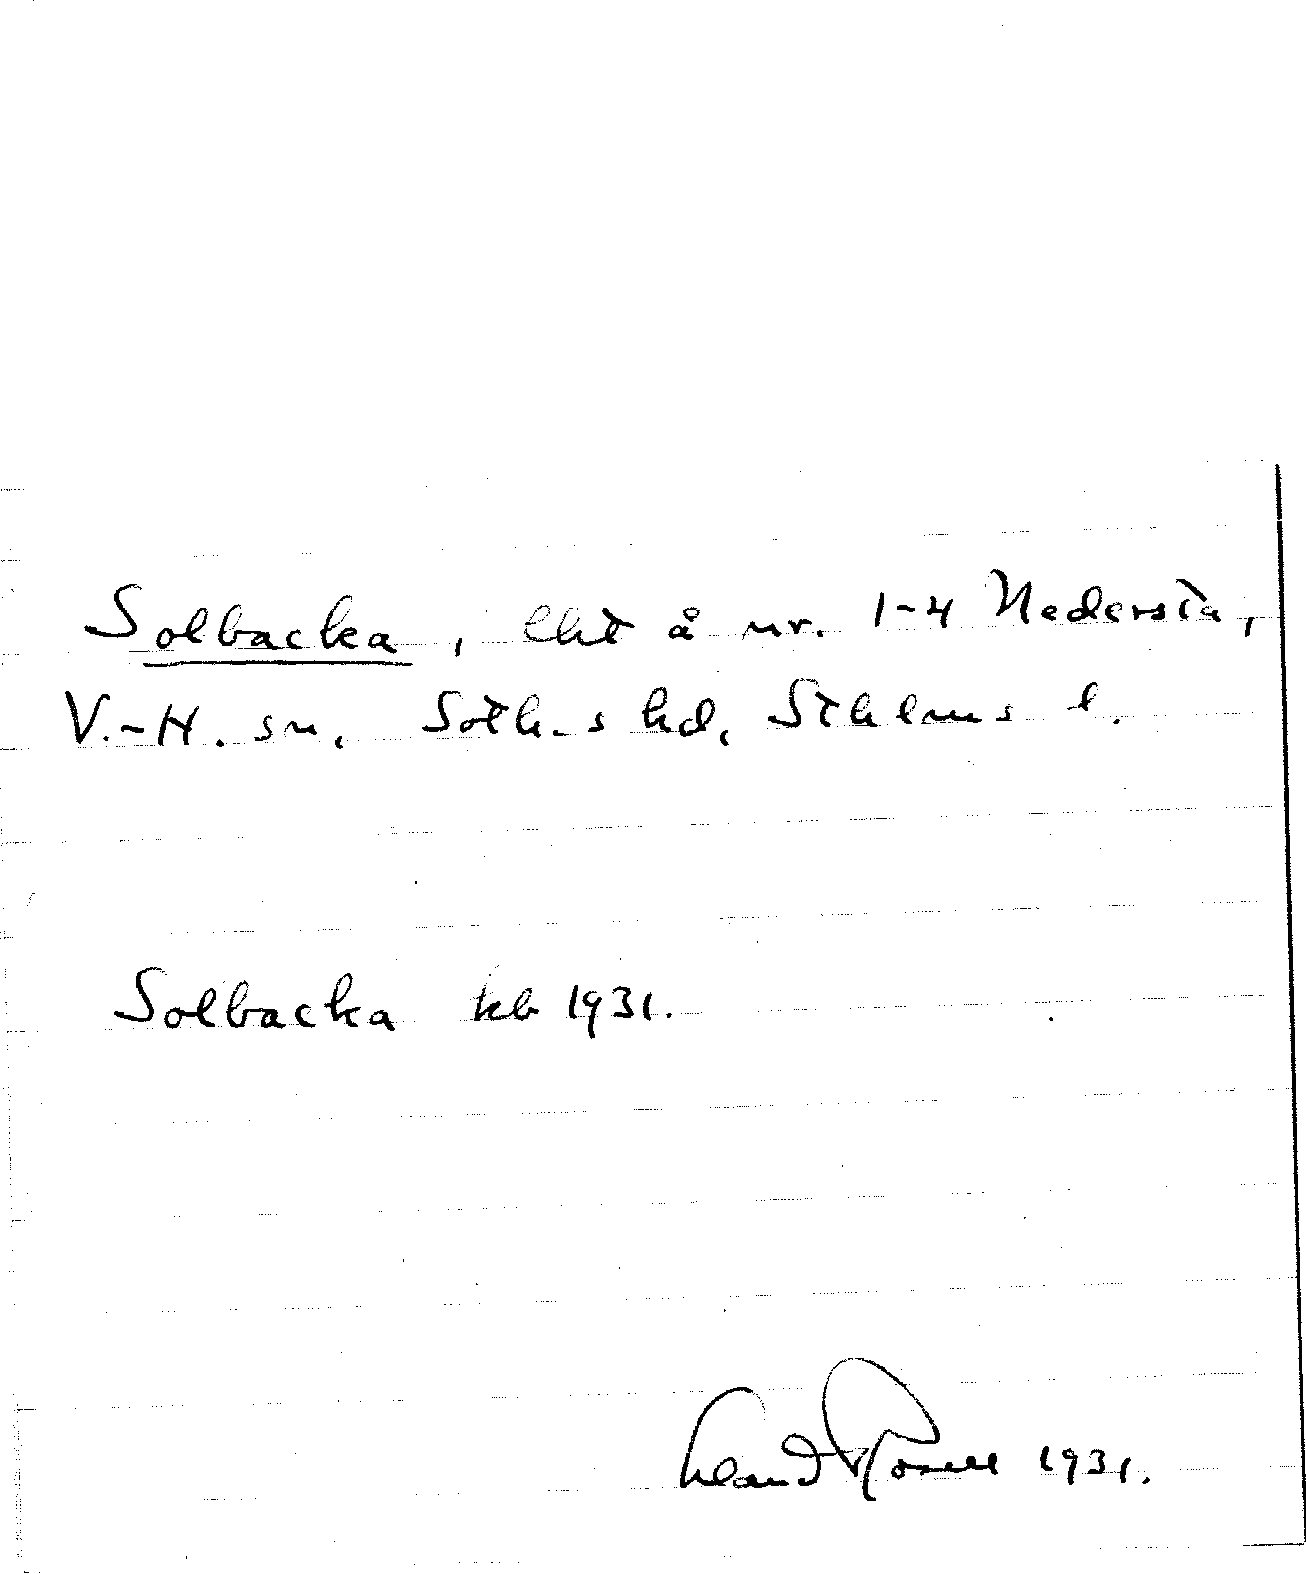 Solbacka, lht å nr. 1-4 Nedersta,
V.-H. sn, Soth-s hd, Sthlms l.
Solbacka kb 1931.
Rosell 1931.